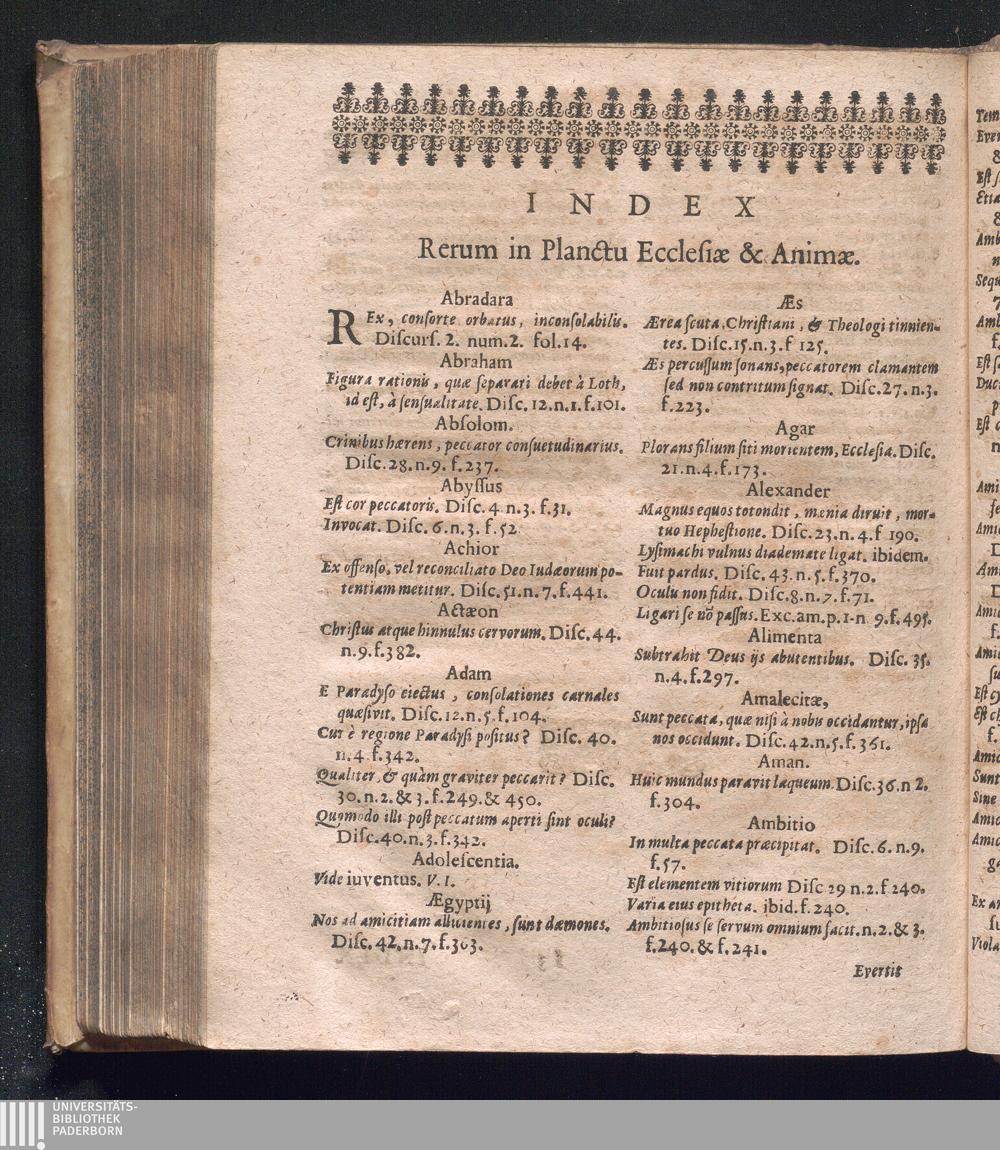 INDEX
Rerum in Planctu Ecclesiæ & Animæ.
Abradara
REx, conſorte orbatus, inconſolabilis.
Diſcurſ. 2. num.2. fol.14.
Abraham
Figura rationis, quæ ſeparari debet à Loth,
id eſt, à ſenſualitate. Diſc.12.n.1.f.101.
Abſolom.
Crinibus hærens, peccator conſuetudinarius.
Diſc.28.n.9. f.237.
Abyſſus
Eſt cor peccatoris. Diſc. 4 n.3. f.31.
Invocat. Diſc. 6.n.3. f.52.
Achior
Ex offenſo, vel reconciliato Deo Iudæorum po-
tentiam metitur. Diſc.51.n.7.f.441.
Actæon
Chriſtus atque hinnulus cervorum. Diſc.44.
n.9.f.382.
Adam
E Paradyſo eiectus, conſolationes carnales
quæſivit. Diſc.12.n.5.f.104.
Cur è regione Paradyſi poſitus? Diſc. 40.
n.4.f.342.
Qualiter, & quàm graviter peccarit? Diſc.
30.n.2.& 3.f.249.& 450.
Quomodo illi poſt peccatum aperti ſint oculi?
Diſc.40.n.3.f.342.
Adoleſcentia.
Vide iuventus. V. I.
Ægyptij
Nos ad amicitiam allicientes, ſunt dæmones.
Diſc. 42.n.7.f.363.
Æs
Ærea ſcuta, Chriſtiani, & Theologi tinnien-
tes. Diſc.15.n.3.f 125.
Æs percuſſum ſonans, peccatorem clamantem
ſed non contritum ſignat. Diſc.27.n.3.
f.223.
Agar
Plorans filium ſiti morientem, Eccleſia. Diſc.
21.n.4.f.173.
Alexander
Magnus equos totondit, mænia diruit, mor-
tuo Hepheſtione. Diſc.23.n.4.f 190.
Lyſimachi vulnus diademate ligat. ibidem.
Fuit pardus. Diſc. 43.n.5.f.370.
Oculu non fidit. Diſc.8.n.7.f.71.
Ligari ſe nõ paſſus. Exc.am.p.1-n 9.f.495.
Alimenta
Subtrahit Deus ijs abutentibus. Diſc. 35.
n.4.f.297.
Amalecitæ,
Sunt peccata, quæ niſi à nobis occidantur, ipſa
nos occidunt. Diſc.42.n.5.f.361.
Aman.
Huic mundus paravit laqueum. Diſc.36.n 2.
f.304.
Ambitio
In multa peccata præcipitat. Diſc.6.n.9.
f.57.
Eſt elementem vitiorum Diſc 29 n.2.f 240.
Varia eius epitheta. ibid.f.240.
Ambitioſus ſe ſervum omnium facit.n.2.& 3.
f.240.& f.241.
Evertit
UNIVERSITÄTS-
BIBLIOTHEK
PADERBORN